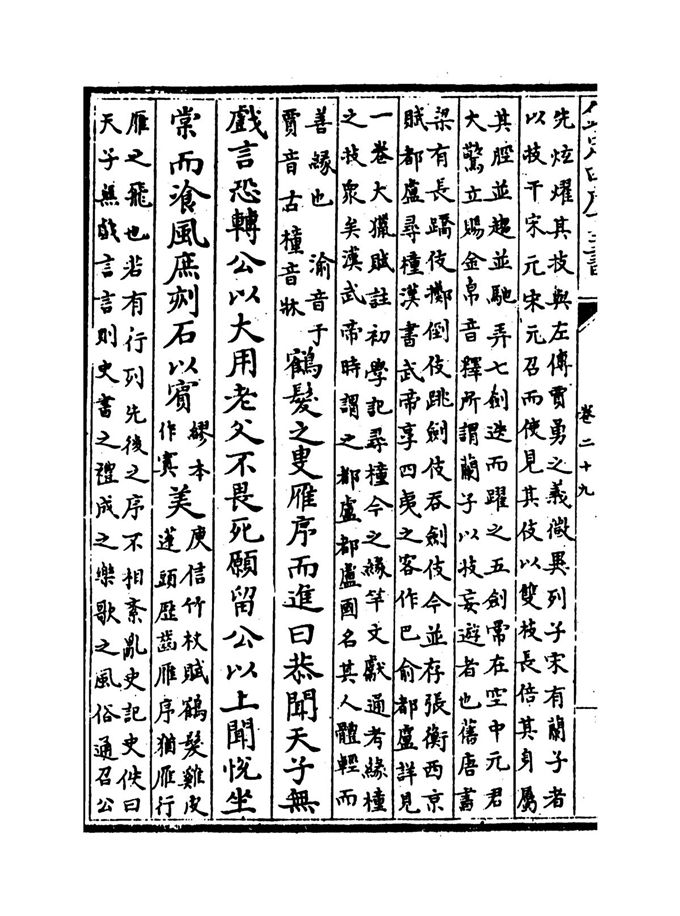 欽定四庫全書
卷二十九
先炫燿其技與左傳賈勇之義微異列子宋有蘭子者
以技干宋元宋元召而使見其伎以雙枝長倍其身屬
其脛並趨並馳弄七劍迭而躍之五劍常在空中元君
大驚立賜金帛音釋所謂蘭子以技妄遊者也舊唐書
梁有長蹻伎擲倒伎跳劍伎吞劍伎今並存張衡西京
賦都盧尋橦漢書武帝享四夷之客作巴俞都盧詳見
一卷大獵賦註初學記尋橦今之緣竿文獻通考緣橦
之技衆矣漢武帝時謂之都盧都盧國名其人體輕而
善緣也 渝音于
賈音古橦音牀
鶴髮之叟雁序而進曰恭聞天子無
戲言恐轉公以大用老父不畏死願留公以上聞悅坐
棠而湌風庶刻石以賓
繆本
作實
美
庾信竹杖賦鶴髮雞皮
蓬頭歷齒雁序猶雁行
雁之飛也若有行列先後之序不相紊亂史記史佚曰
天子無戲言言則史書之禮成之樂歌之風俗通召公